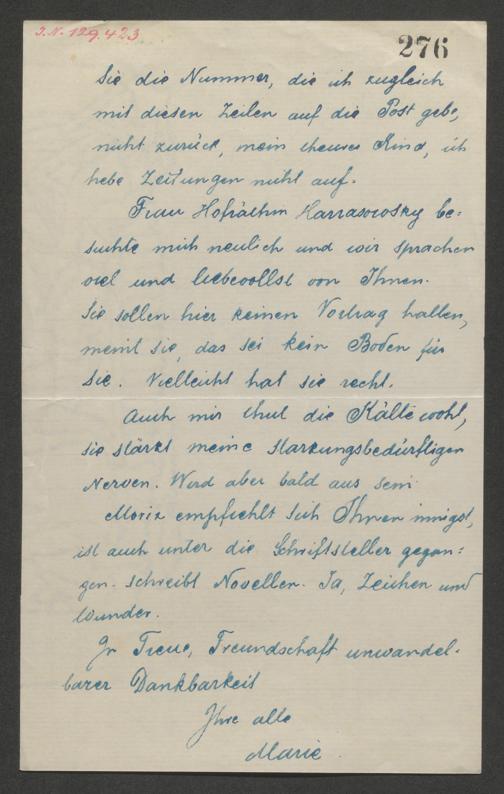 I.N. 129.423
276
Sie die Nummer, die ich zugleich
mit diesen Zeilen auf die Post gebe,
nicht zurück, mein theures Kind, ich
hebe Zeitungen nicht auf.
Frau Hofräthin Harrasowsky be=
suchte mich neulich und wir sprachen
viel und liebevollst von Ihnen.
Sie sollen hier keinen Vortrag halten,
meint sie, das sei kein Boden für
Sie. Vielleicht hat sie recht.
Auch mir thut die Kälte wohl,
sie stärkt meine starkungsbedürftigen
Nerven. Wird aber bald aus sein
Moriz empfiehlt sich Ihnen innigst,
ist auch unter die Schriftsteller gegan=
gen. schreibt Novellen. Ja, Zeichen und
Wunder.
In Treue, Freundschaft unwandel-
barer Dankbarkeit
Ihre alte
Marie.